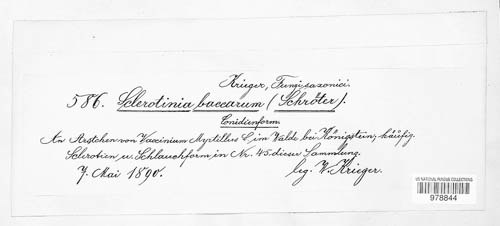 Krieger, Fungi saxonici.
586. Sclerotinia baccarum (Schröter).
Conidienform.
An Aestchen von Vaccinium Myrtillus L. im Walde bei Königstein, häufig.
Sclerotien u. Schlauchform in Nr. 45 dieser Sammlung.
7. Mai 1890. leg. W. Krieger.
US NATIONAL FUNGUS COLLECTIONS
978844